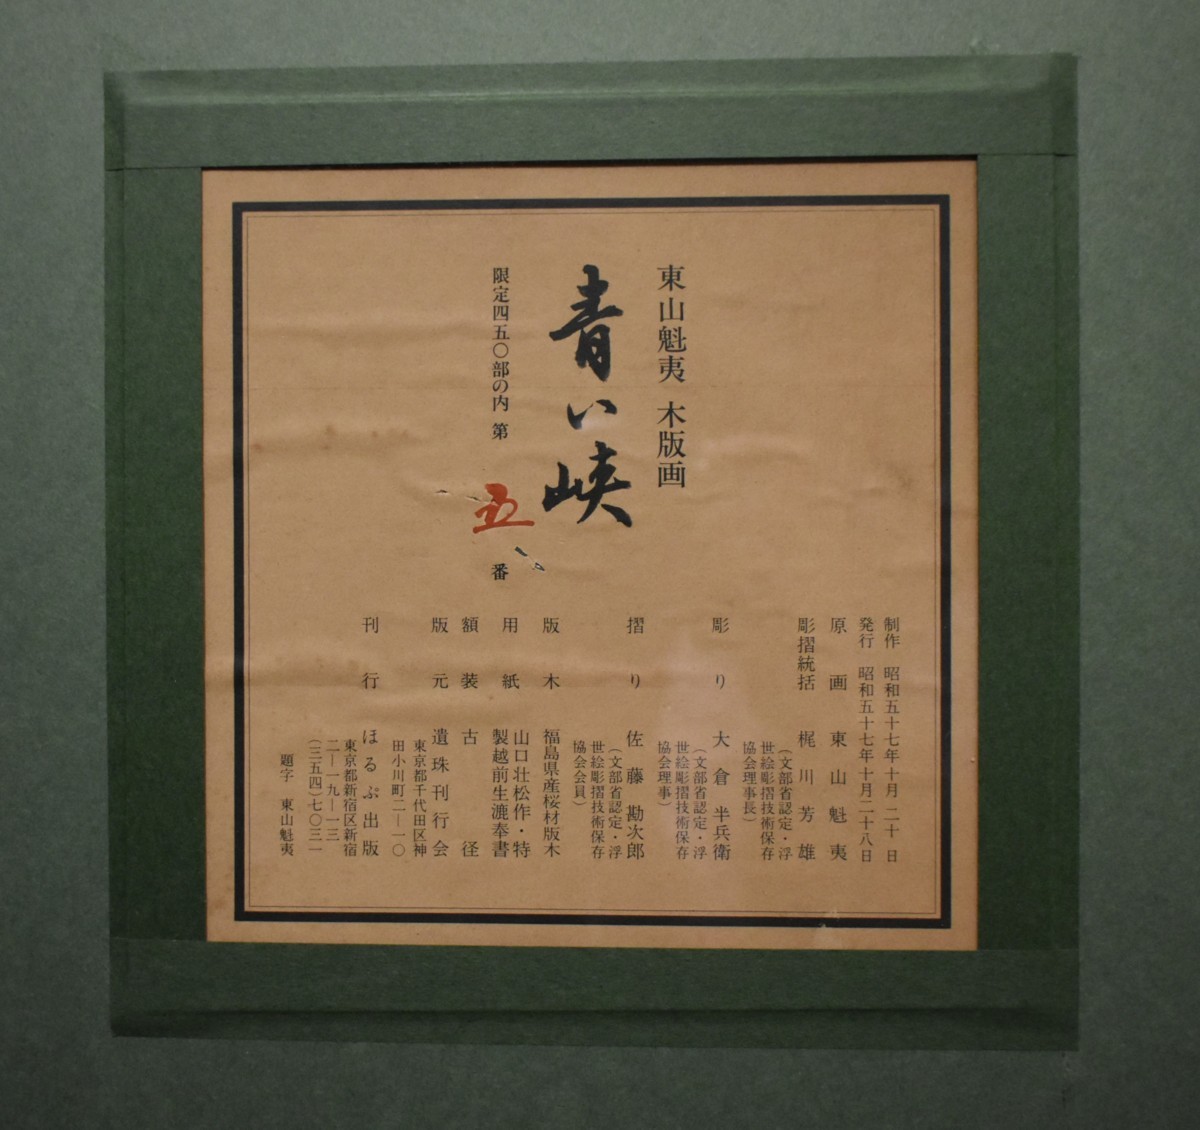 東山魁夷 木版画
青い峡
限定四五〇部の内 第 五 番
制作 昭和五十七年十月 二十 日
発行 昭和五十七年十月二十八日
原画 東山魁夷
彫摺統括 梶川芳雄
(文部省認定・浮
世絵彫摺技術保存
協会理事長)
彫り 大倉半兵衛
(文部省認定・浮
世絵彫摺技術保存
協会理事)
摺り 佐藤勘次郎
(文部省認定・浮
世絵彫摺技術保存
協会会員)
版木 福島県産桜材版木
用紙 山口壮松作・特
製越前生漉奉書
額装 古径
版元 遺珠刊行会
東京都千代田区神
田小川町二―一〇
刊行 ほるぷ出版
東京都新宿区新宿
二―一九―一三
(三五四)七〇三一
題字 東山魁夷